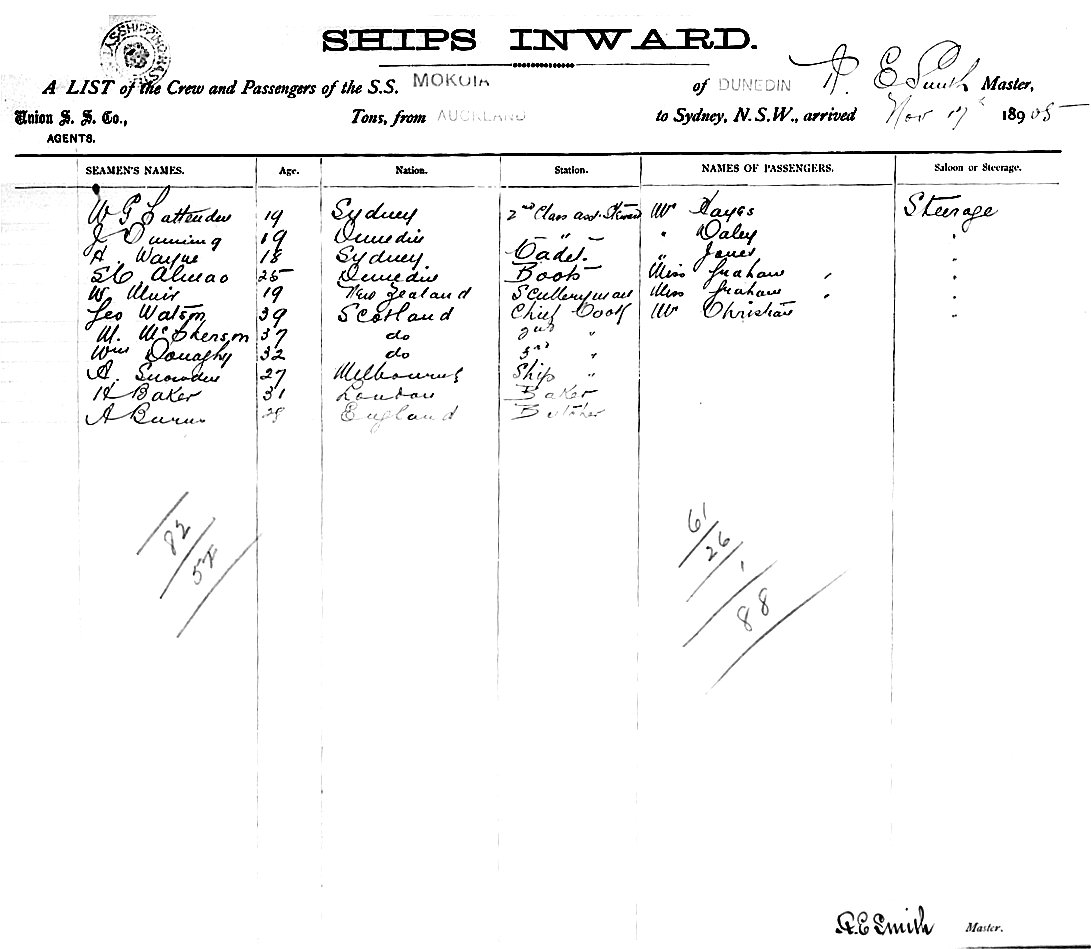 SHIPS INWARD.
A LIST of the Crew and Passengers of the S.S. MOKOIA of DUNEDIN A. E Smith Master,
Union S. S. Co., Tons, from AUCKLAND to Sydney, N.S.W., arrived Nov 17th 18905
AGENTS.
SEAMEN'S NAMES. Age. Nation. Station. NAMES OF PASSENGERS. Saloon or Steerage.
W G 19 Sydney 2nd Class asst. Steward Mr Hayes Steerage
J 19 Dunedin " " " Daley "
A. Wayne 18 Sydney Cadet. " Jones "
25 Dunedin Boots Miss Graham "
W Muir 19 New Zealand Sculleryman Miss Graham "
Geo Watson 39 Scotland Chief Cook Mr Christian "
M. McPherson 37 do 2nd "
Wm Donaghy 32 do 3rd "
A. Snowden 27 Melbourne Ship "
H Baker 31 London Baker
A Burns 28 England Butcher
82
57
61
26
1
88
A.E Smith Master.